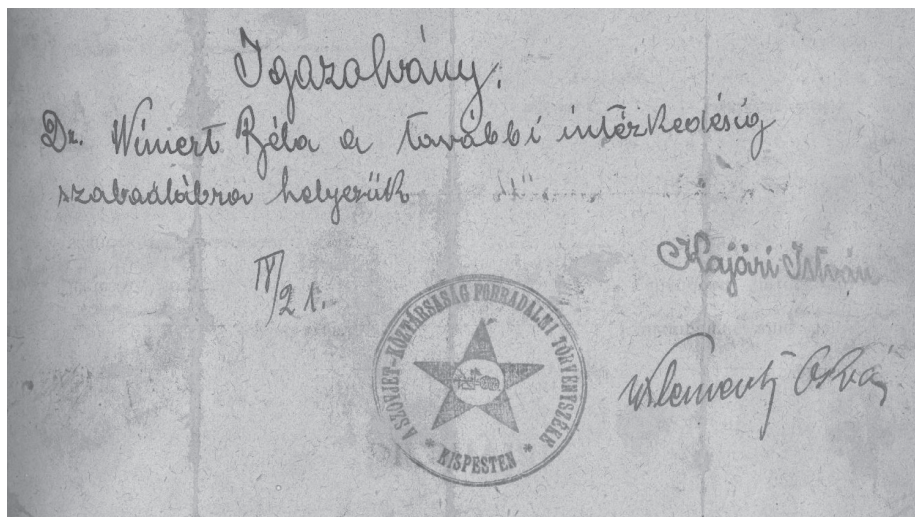 Igazolvány.
Dr. Winiert Béla a további intézkedésig
szabadlábra helyezük
IV/21.
Kajári István
Klementz Oszkár
A SZOVJET-KÖZTÁRSASÁG FORRADALMI TÖRVÉNYSZÉKE
* KISPESTEN *